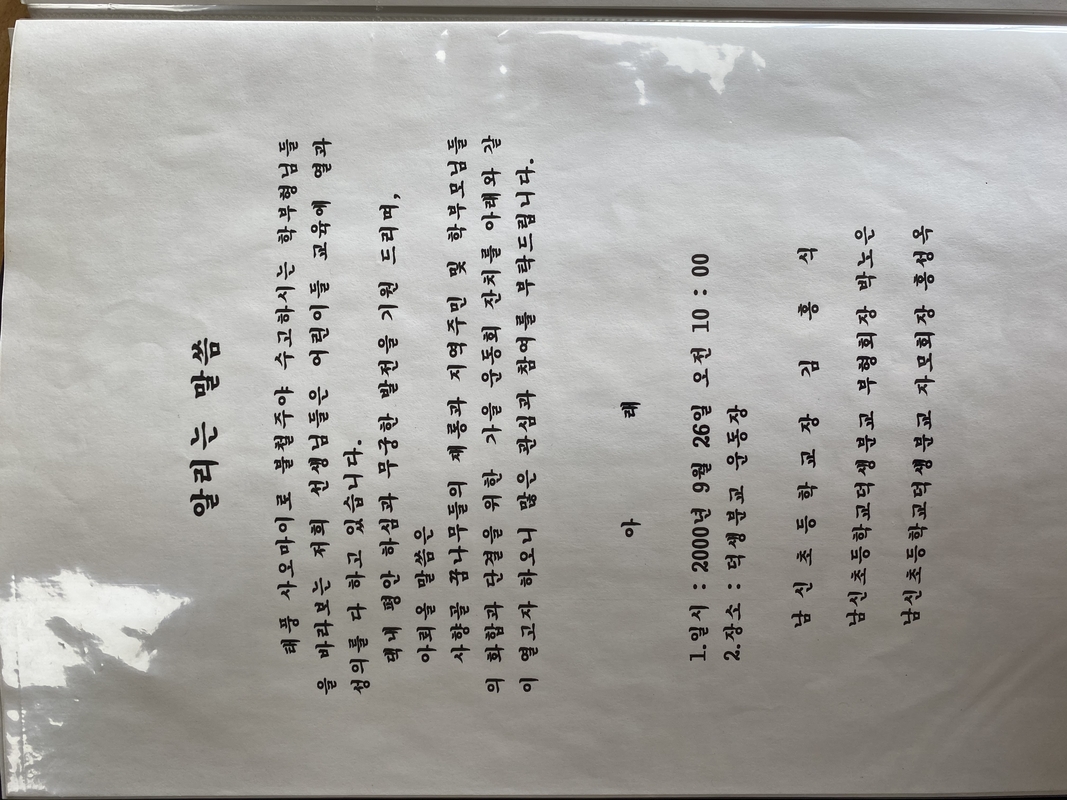 알리는 말씀
태풍 사오마이로 불철주야 수고하시는 학부형님들
을 바라보는 저희 선생님들은 어린이들 교육에 열과
성의를 다 하고 있습니다.
댁내 평안 하심과 무궁한 발전을 기원 드리며,
아뢰올 말씀은
사향골 꿈나무들의 재롱과 지역주민 및 학부모님들
의 화합과 단결을 위한 가을 운동회 잔치를 아래와 같
이 열고자 하오니 많은 관심과 참여를 부탁드립니다.
아 래
1.일시 : 2000년 9월 26일 오전 10 : 00
2.장소 : 덕생분교 운동장
남 신 초 등 학 교 장 김 홍 식
남신초등학교덕생분교 부형회장 박노은
남신초등학교덕생분교 자모회장 홍성옥